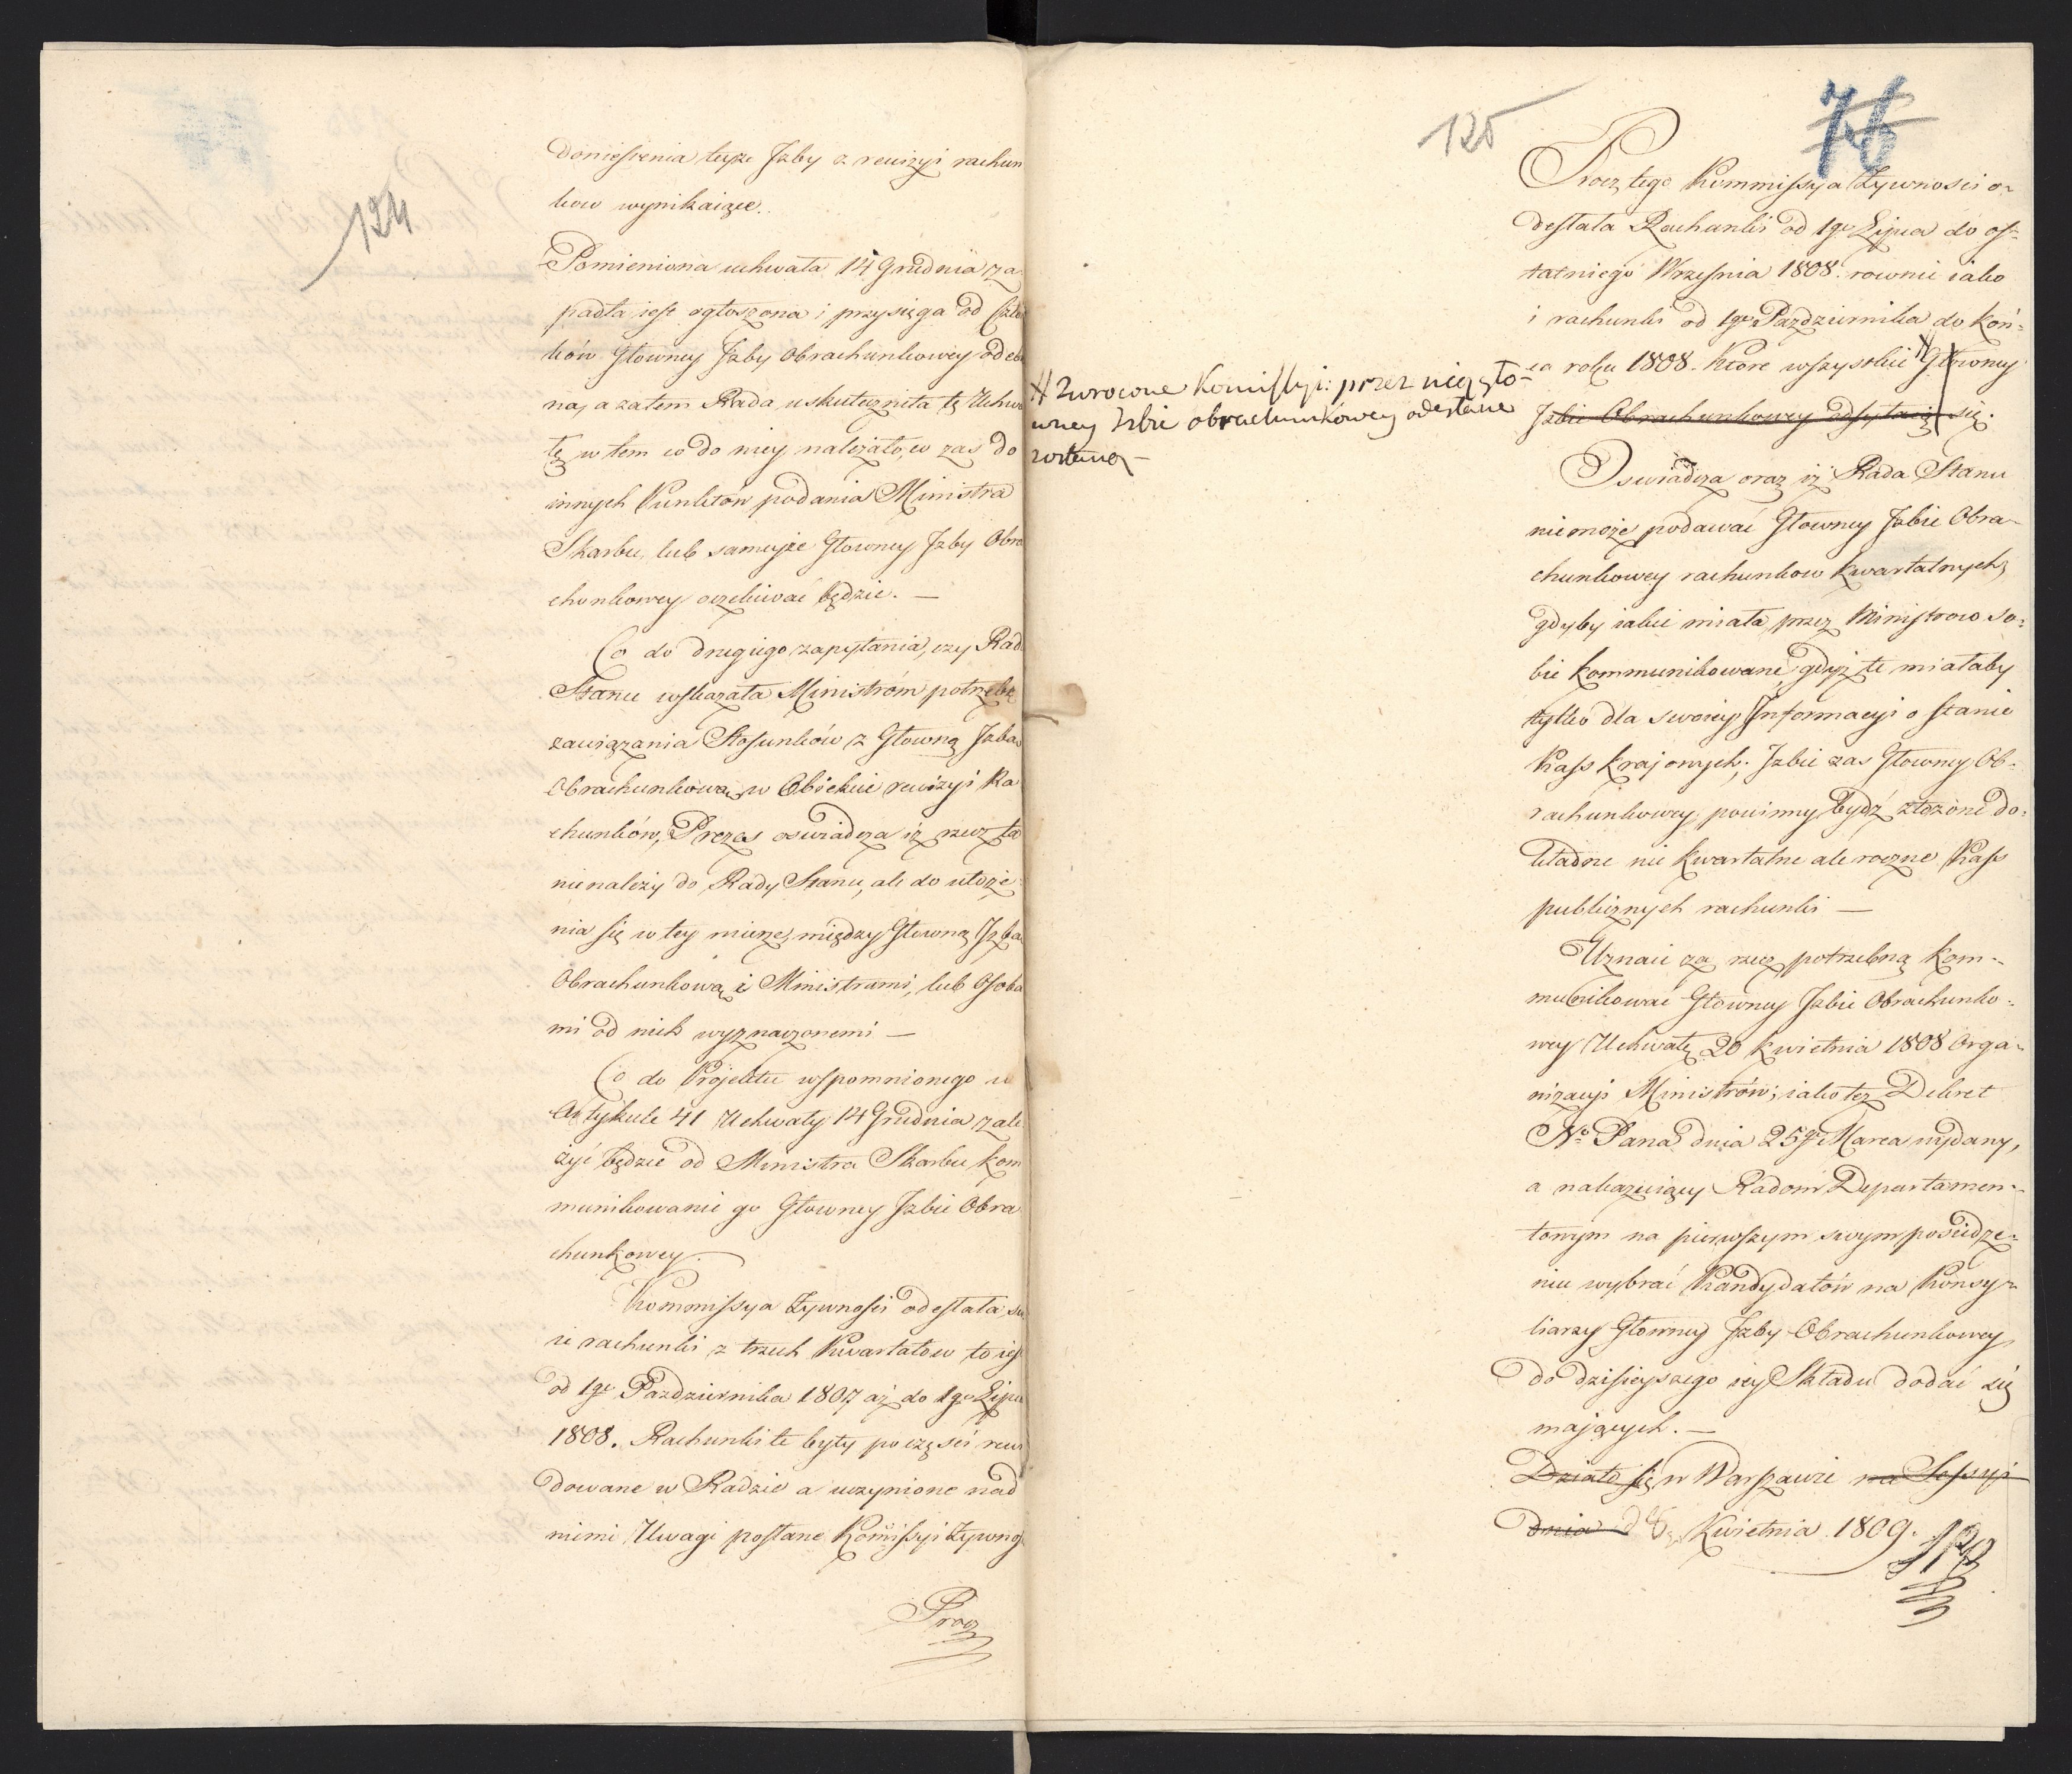 124
doniesienia teyże Izby z rewizyi rachun
kow wynikaiące.
Pomieniona uchwała 14 Grudnia za
padła iest ogłoszona i przysięga od Człon
ków Głowney Izby Obrachunkowey odebra
na, a zatem Rada uskuteczniła tę Uchwa
łę w tem co do niey należało, w zas do
innych Punktów podania Ministra
Skarbu, lub sameyże Głowney Izby Obra
chunkowey oczekiwać będzie. —
Co do drugiego zapytania, czy Rada
Stanu wskazała Ministróm potrzebę
zawiązania Stosunków z Głowną Izbą
Obrachunkową w Obiekcie rewizyi Ra
chunków, Prezes oswiadcza iż rzecz ta
nienależy do Rady Stanu, ale do ułoże
nia się w tey mierze, między Głowną Izbą
Obrachunkową i Ministrami, lub Osoba
mi od nich wyznaczonemi —
Co do Projektu wspomnionego w
Artykule 41 Uchwały 14 Grudnia zale
żyć będzie od Ministra Skarbu kom
munikowanie go Głowney Izbie Obra
chunkowey.
Kommissya Żywnosci odesłała swo
ie rachunki z trzech Kwartałow to iest
od 1go Pazdziernika 1807 aż do 1go Lipca
1808. Rachunki te były po częsci rewi
dowane w Radzie a uczynione nad
niemi Uwagi posłane Kommissyi Żywnos
Procz
125
76
Procz tego Kommissya Żywnosci o-
desłała Rachunki od 1go Lipca do os-
tatniego Września 1808. rownie iako
i rachunki od 1go Pazdziernika do koń-
ca roku 1808. które wszystkie # Głowney
Izbie Obrachunkowey odsyłaią się.
# zwrocone Komissyi: przez nię gło-
wney Izbie obrachunkowey odesłane
zostaną —
Oswiadcza oraz iż Rada Stanu
niemoże podawać Głowney Izbie Obra-
chunkowey rachunkow kwartalnych,
gdyby iakie miała przez Ministrow so-
bie kommunikowane, gdyż te miałaby
tylko dla swoiey Informacyi o stanie
Kass krajowych; Izbie zas Głowney Ob-
rachunkowey, powinny bydź złożone do-
kładne nie kwartalne ale roczne Kass
publicznych rachunki —
Uznaie za rzecz potrzebną kom-
munikować Głowney Izbie Obrachunko-
wey Uchwałę 20 Kwietnia 1808 Orga-
nizacyi Ministrów; iako też Dekret
No Pana dnia 25go Marca wydany,
a nakazuiący Radom Departamen-
towym na pierwszym swym posiedze-
niu wybrać Kandydatów na Konsy-
liarzy Głowney Izby Obrachunkowey
do dzisieyszego iey Składu dodać się
mających. —
Działo się w Warszawie na Sessyi
Dnia d 8 Kwietnia 1809.